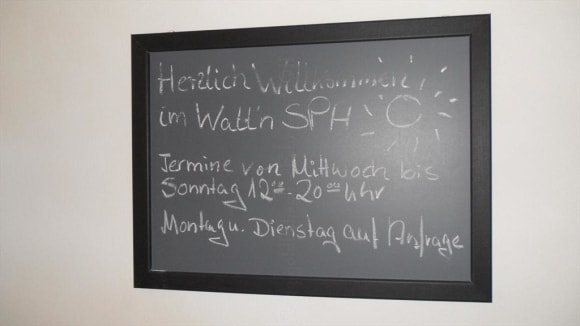 Herzlich Willkommen
im Watt'n SPH
Termine von Mittwoch bis
Sonntag 12°°-20°° Uhr
Montag u. Dienstag auf Anfrage